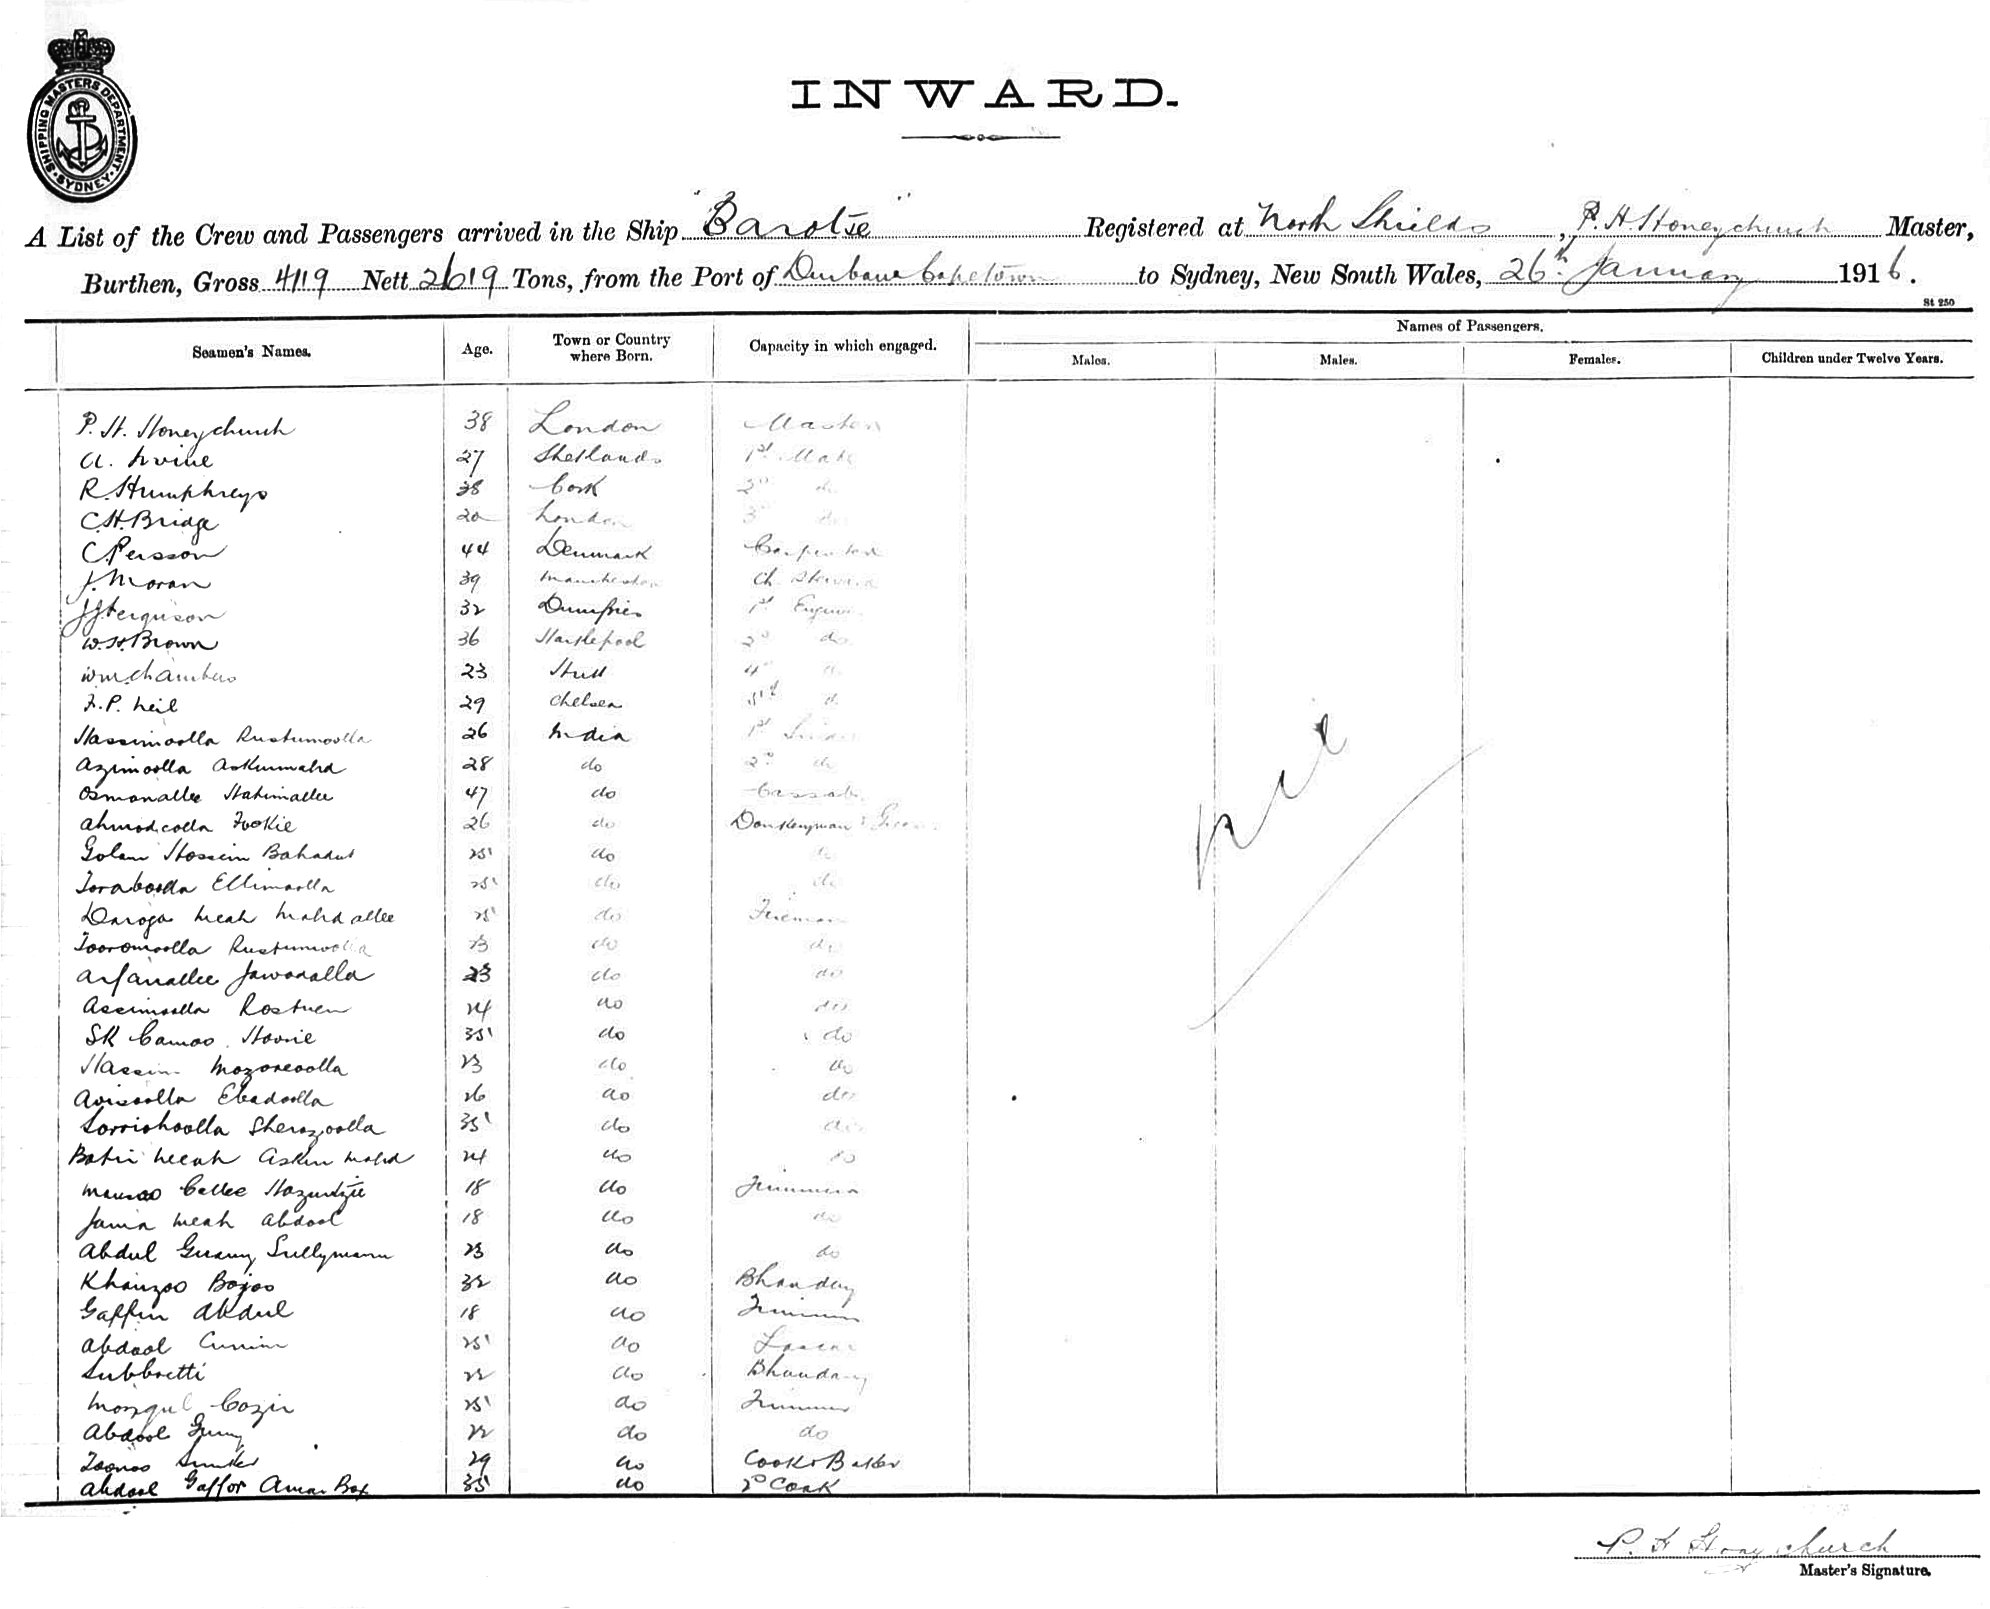 SHIPPING MASTERS DEPARTMENT. SYDNEY
INWARD.
A List of the Crew and Passengers arrived in the Ship "Barotse" Registered at North Shields, P. H. Honeychurch Master,
Burthen, Gross 4119 Nett 2619 Tons, from the Port of Durban Capetown to Sydney, New South Wales, 26th January 1916.
St 250
Seamen's Names. Age. Town or Country where Born. Capacity in which engaged. Names of Passengers.
Males. Males. Females. Children under Twelve Years.
P. H. Honeychurch 38 London Master
A. Irvine 27 Shetlands 1st Mate
R. Humphreys 38 Cork 2nd do
C. H. Bridge 20 London 3rd do
C. Persson 44 Denmark Carpenter
J. Moran 39 Manchester Ch. Steward
J. J. Ferguson 32 Dumfries 1st Engineer
W. H. Brown 36 Hartlepool 2nd do
Wm. Chambers 23 Hull 4th do
F. P. Neil 29 Chelsea do
Hassimoolla Rustumoolla 26 India 1st
Azimoolla Askurmahd 28 do 2nd do
Osmanallee Hatimallee 47 do Cassab
Ahmodoolla Fookie 26 do Donkeyman &
Golam Hossein Bahadut 25 do do
Toraboolla Ellimoolla 25 do do
Daroga Meah Mahd allee 25 do Fireman
Tooromoolla Rustumoolla 23 do do
Arfanallee Jawadalla 23 do do
Assimoolla Rostuen 24 do do
SK Camoo Hovie 35 do do
Hassim Mozoreoolla 23 do do
Avisoolla Ebadoolla 26 do do
Sorriohoolla Sherazoolla 35 do do
Batir Meah Askur Mahd 24 do do
Mansoo Callee Hazurdjie 18 do Trimmers
Jama Meah Abdool 18 do do
Abdul Guany Sullymann 23 do do
Khanzoo Bojoo 32 do Bhandary
Gaffur Abdul 18 do Trimmer
Abdool Currim 25 do Lascar
Subbretti 22 do Bhandary
Mongul Cozir 25 do Trimmer
Abdool Guny 22 do do
Toonoo 29 do Cook & Baker
Abdool Gaffor Amar Box 35 do 2nd Cook
Nil
P. H. Honeychurch
Master's Signature.